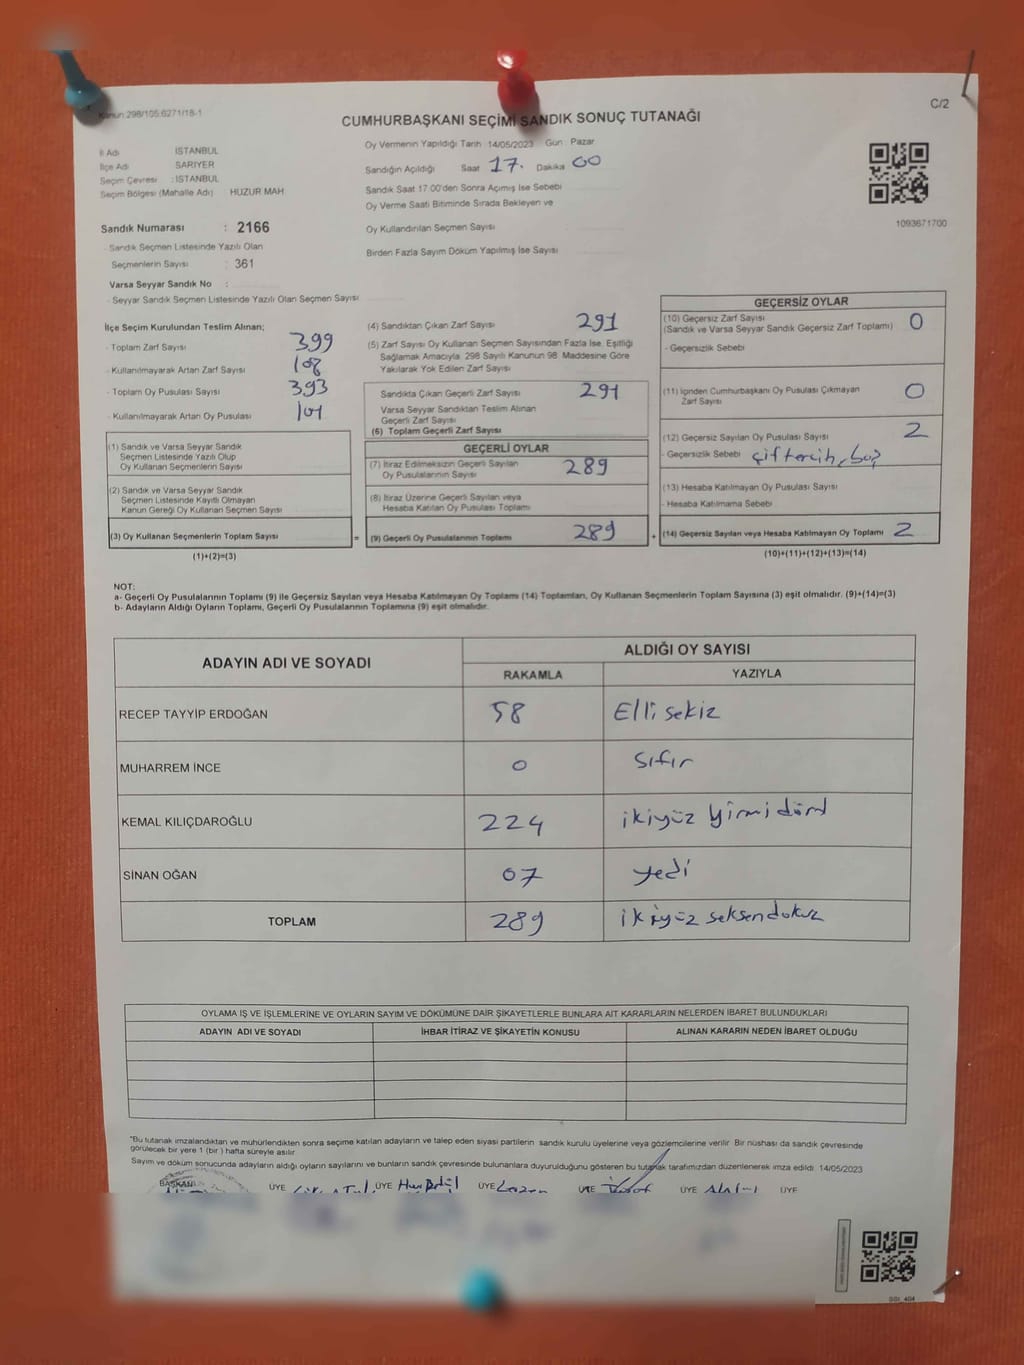 Kanun 298/105:6271/18-1
C/2
CUMHURBAŞKANI SEÇİMİ SANDIK SONUÇ TUTANAĞI
İl Adı İSTANBUL
İlçe Adı SARIYER
Seçim Çevresi : İSTANBUL
Seçim Bölgesi (Mahalle Adı) HUZUR MAH
Sandık Numarası : 2166
- Sandık Seçmen Listesinde Yazılı Olan
Seçmenlerin Sayısı : 361
Varsa Seyyar Sandık No :
- Seyyar Sandık Seçmen Listesinde Yazılı Olan Seçmen Sayısı
Oy Vermenin Yapıldığı Tarih 14/05/2023 Gün Pazar
Sandığın Açıldığı Saat 17. Dakika 00
Sandık Saat 17 00'den Sonra Açımış İse Sebebi
Oy Verme Saati Bitiminde Sırada Bekleyen ve
Oy Kullandırılan Seçmen Sayısı
Birden Fazla Sayım Döküm Yapılmış İse Sayısı
1093671700
İlçe Seçim Kurulundan Teslim Alınan;
- Toplam Zarf Sayısı 399
- Kullanılmayarak Artan Zarf Sayısı 108
- Toplam Oy Pusulası Sayısı 393
- Kullanılmayarak Artan Oy Pusulası 101
(1) Sandık ve Varsa Seyyar Sandık
Seçmen Listesinde Yazılı Olup
Oy Kullanan Seçmenlerin Sayısı
(2) Sandık ve Varsa Seyyar Sandık
Seçmen Listesinde Kayıtlı Olmayan
Kanun Gereği Oy Kullanan Seçmen Sayısı
(3) Oy Kullanan Seçmenlerin Toplam Sayısı =
(1)+(2)=(3)
(4) Sandıktan Çıkan Zarf Sayısı 291
(5) Zarf Sayısı Oy Kullanan Seçmen Sayısından Fazla İse, Eşitliği
Sağlamak Amacıyla 298 Sayılı Kanunun 98. Maddesine Göre
Yakılarak Yok Edilen Zarf Sayısı
Sandıkta Çıkan Geçerli Zarf Sayısı 291
Varsa Seyyar Sandıktan Teslim Alınan
Geçerli Zarf Sayısı
(6) Toplam Geçerli Zarf Sayısı
GEÇERLİ OYLAR
(7) İtiraz Edilmeksizin Geçerli Sayılan
Oy Pusulalarının Sayısı 289
(8) İtiraz Üzerine Geçerli Sayılan veya
Hesaba Katılan Oy Pusulası Toplamı
(9) Geçerli Oy Pusulalarının Toplamı 289 +
GEÇERSİZ OYLAR
(10) Geçersiz Zarf Sayısı
(Sandık ve Varsa Seyyar Sandık Geçersiz Zarf Toplamı) 0
- Geçersizlik Sebebi
(11) İçinden Cumhurbaşkanı Oy Pusulası Çıkmayan
Zarf Sayısı 0
(12) Geçersiz Sayılan Oy Pusulası Sayısı 2
- Geçersizlik Sebebi çift tercih, boş
(13) Hesaba Katılmayan Oy Pusulası Sayısı
- Hesaba Katılmama Sebebi
(14) Geçersiz Sayılan veya Hesaba Katılmayan Oy Toplamı 2
(10)+(11)+(12)+(13)=(14)
NOT:
a- Geçerli Oy Pusulalarının Toplamı (9) ile Geçersiz Sayılan veya Hesaba Katılmayan Oy Toplamı (14) Toplamları, Oy Kullanan Seçmenlerin Toplam Sayısına (3) eşit olmalıdır. (9)+(14)=(3)
b- Adayların Aldığı Oyların Toplamı, Geçerli Oy Pusulalarının Toplamına (9) eşit olmalıdır.
ADAYIN ADI VE SOYADI
ALDIĞI OY SAYISI
RAKAMLA YAZIYLA
RECEP TAYYİP ERDOĞAN 58 Elli sekiz
MUHARREM İNCE 0 Sıfır
KEMAL KILIÇDAROĞLU 224 ikiyüz yirmi dört
SİNAN OĞAN 07 yedi
TOPLAM 289 ikiyüz seksendokuz
OYLAMA İŞ VE İŞLEMLERİNE VE OYLARIN SAYIM VE DÖKÜMÜNE DAİR ŞİKAYETLERLE BUNLARA AİT KARARLARIN NELERDEN İBARET BULUNDUKLARI
ADAYIN ADI VE SOYADI İHBAR İTİRAZ VE ŞİKAYETİN KONUSU ALINAN KARARIN NEDEN İBARET OLDUĞU
"Bu tutanak imzalandıktan ve mühürlendikten sonra seçime katılan adayların ve talep eden siyasi partilerin sandık kurulu üyelerine veya gözlemcilerine verilir Bir nüshası da sandık çevresinde
görülecek bir yere 1 (bir ) hafta süreyle asılır
Sayım ve döküm sonucunda adayların aldığı oyların sayılarını ve bunların sandık çevresinde bulunanlara duyurulduğunu gösteren bu tutanak tarafımızdan düzenlenerek imza edildi 14/05/2023
BAŞKAN ÜYE ÜYE ÜYE ÜYE ÜYE ÜYE